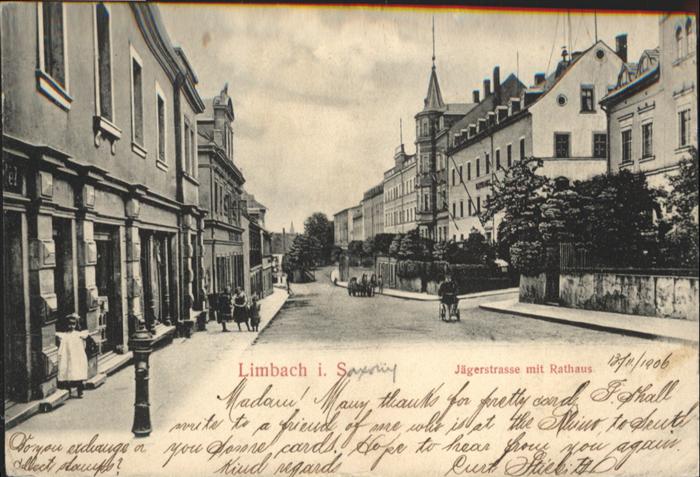 Limbach i. Saxony
Jägerstrasse mit Rathaus
13/11/1906
Madam! Many thanks for pretty card. I shall
write to a friend of me who is at the to send
you some cards. Hope to hear from you again.
Kind regards Curt
Do you exchange or
collect stamps?